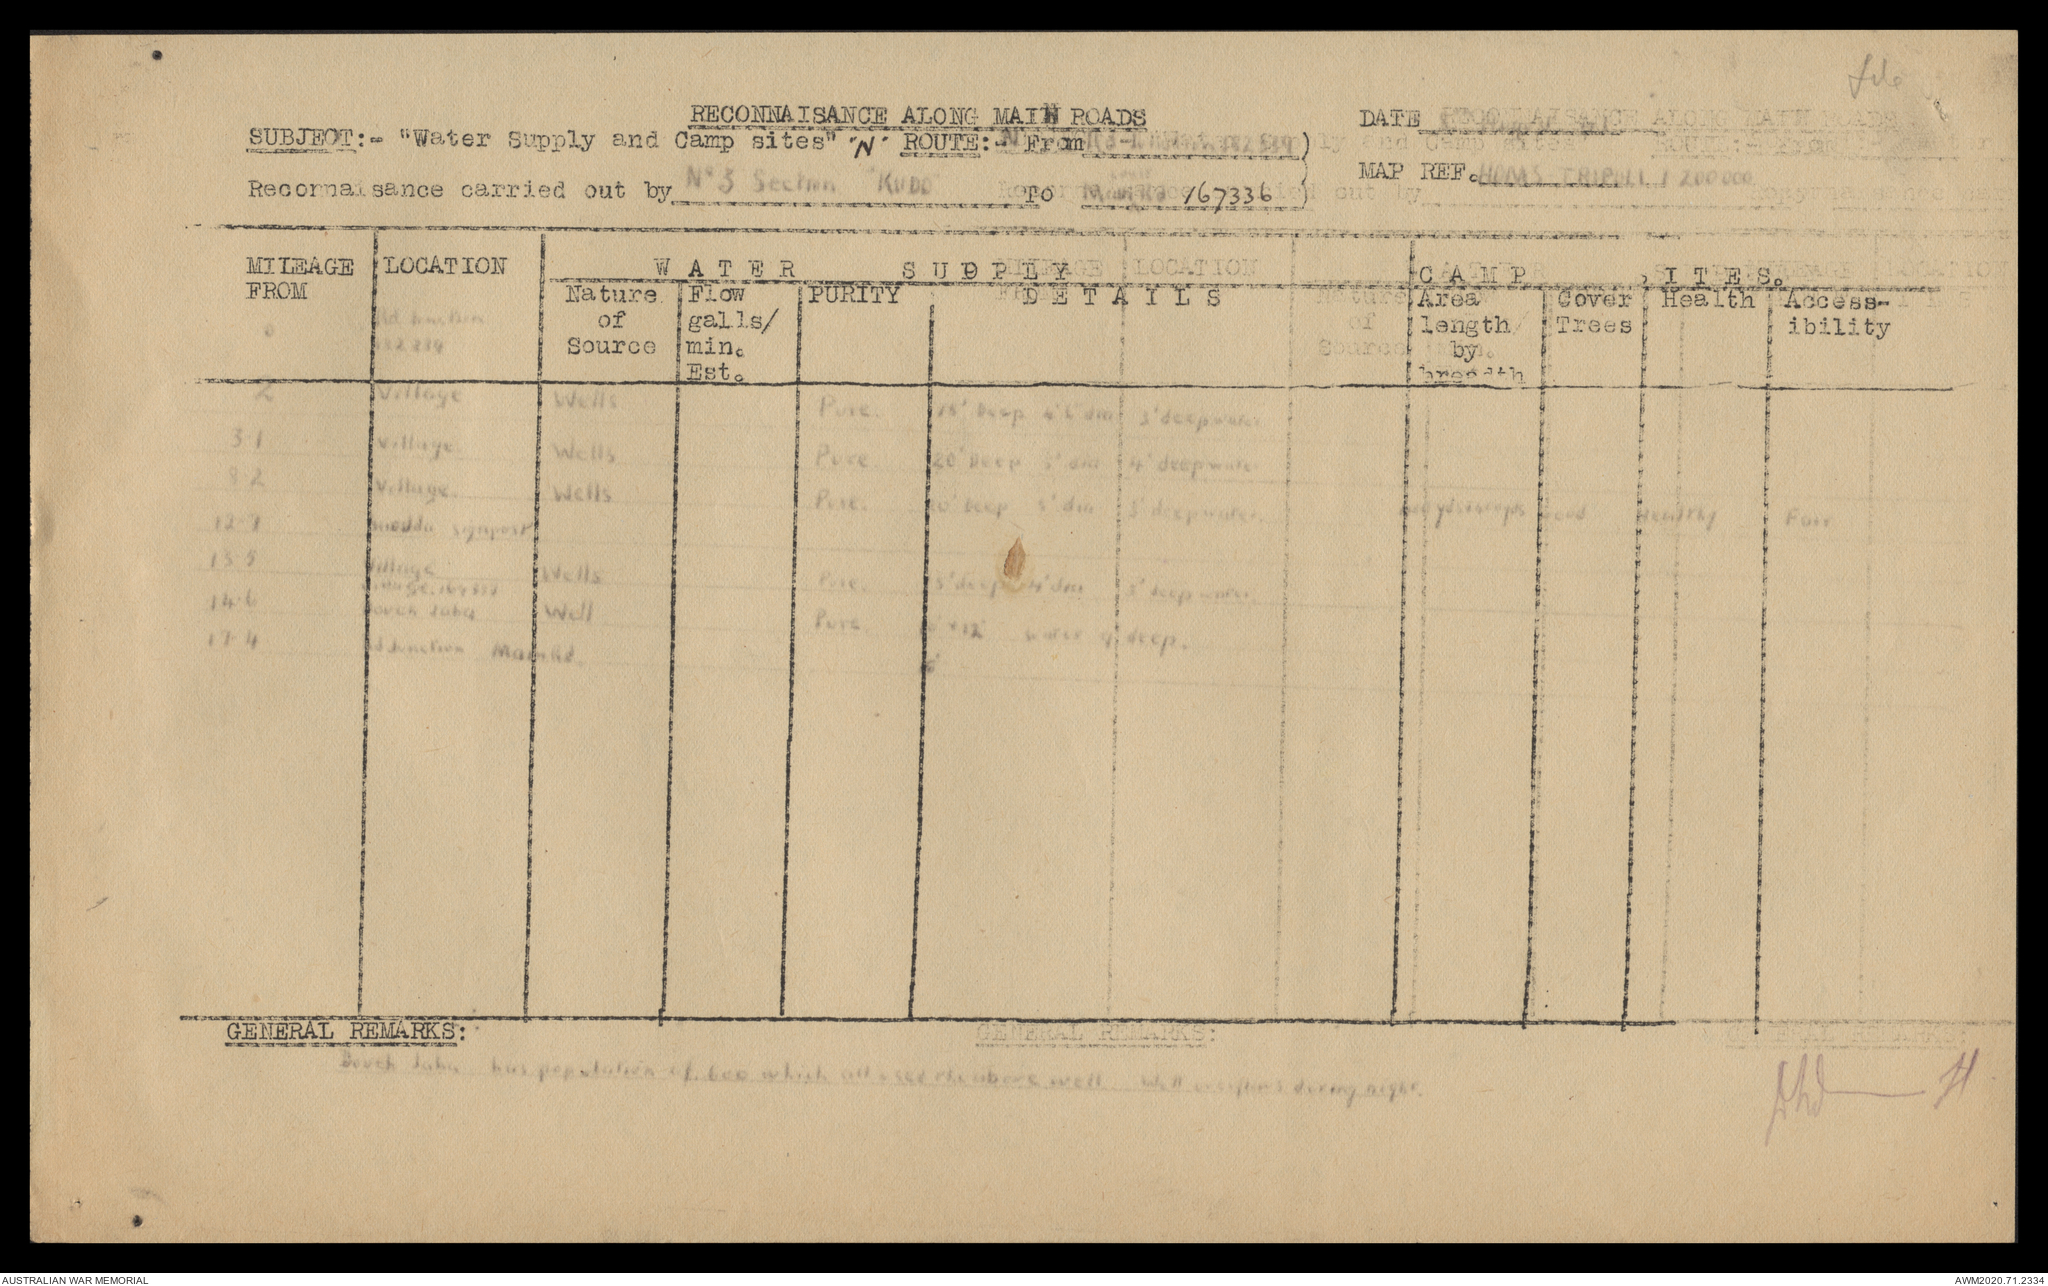 file
RECONNAISANCE ALONG MAIN ROADS
DATE
SUBJECT:- "Water Supply and Camp sites" "N" ROUTE:- From )
MAP REF. HOMS TRIPOLI 1/200000
Reconnaisance carried out by No 3 Section "KUDO" To 167336 )
MILEAGE FROM LOCATION WATER SUPPLY CAMP SITES.
Nature of Source Flow galls/min. Est. PURITY DETAILS Area length by breadth Cover Trees Health Access-ibility
0 Rd Junction
2 Village Wells Pure. 18' Deep 4'6" dia 3' deep water
3.1 Village Wells Pure 20' Deep 5' dia 4' deep water
8.2 Village Wells Pure. Deep 5' dia 3' deep water. Good Healthy Fair
12.7 signpost
13.9 Village Wells Pure. deep 4' dia 3' deep water
14.6 Well Pure. x 12' water 9' deep.
17.4 Rd Junction Main Rd.
GENERAL REMARKS:
has population of 600 which all used the above well. Well during night.
AUSTRALIAN WAR MEMORIAL
AWM2020.71.2334